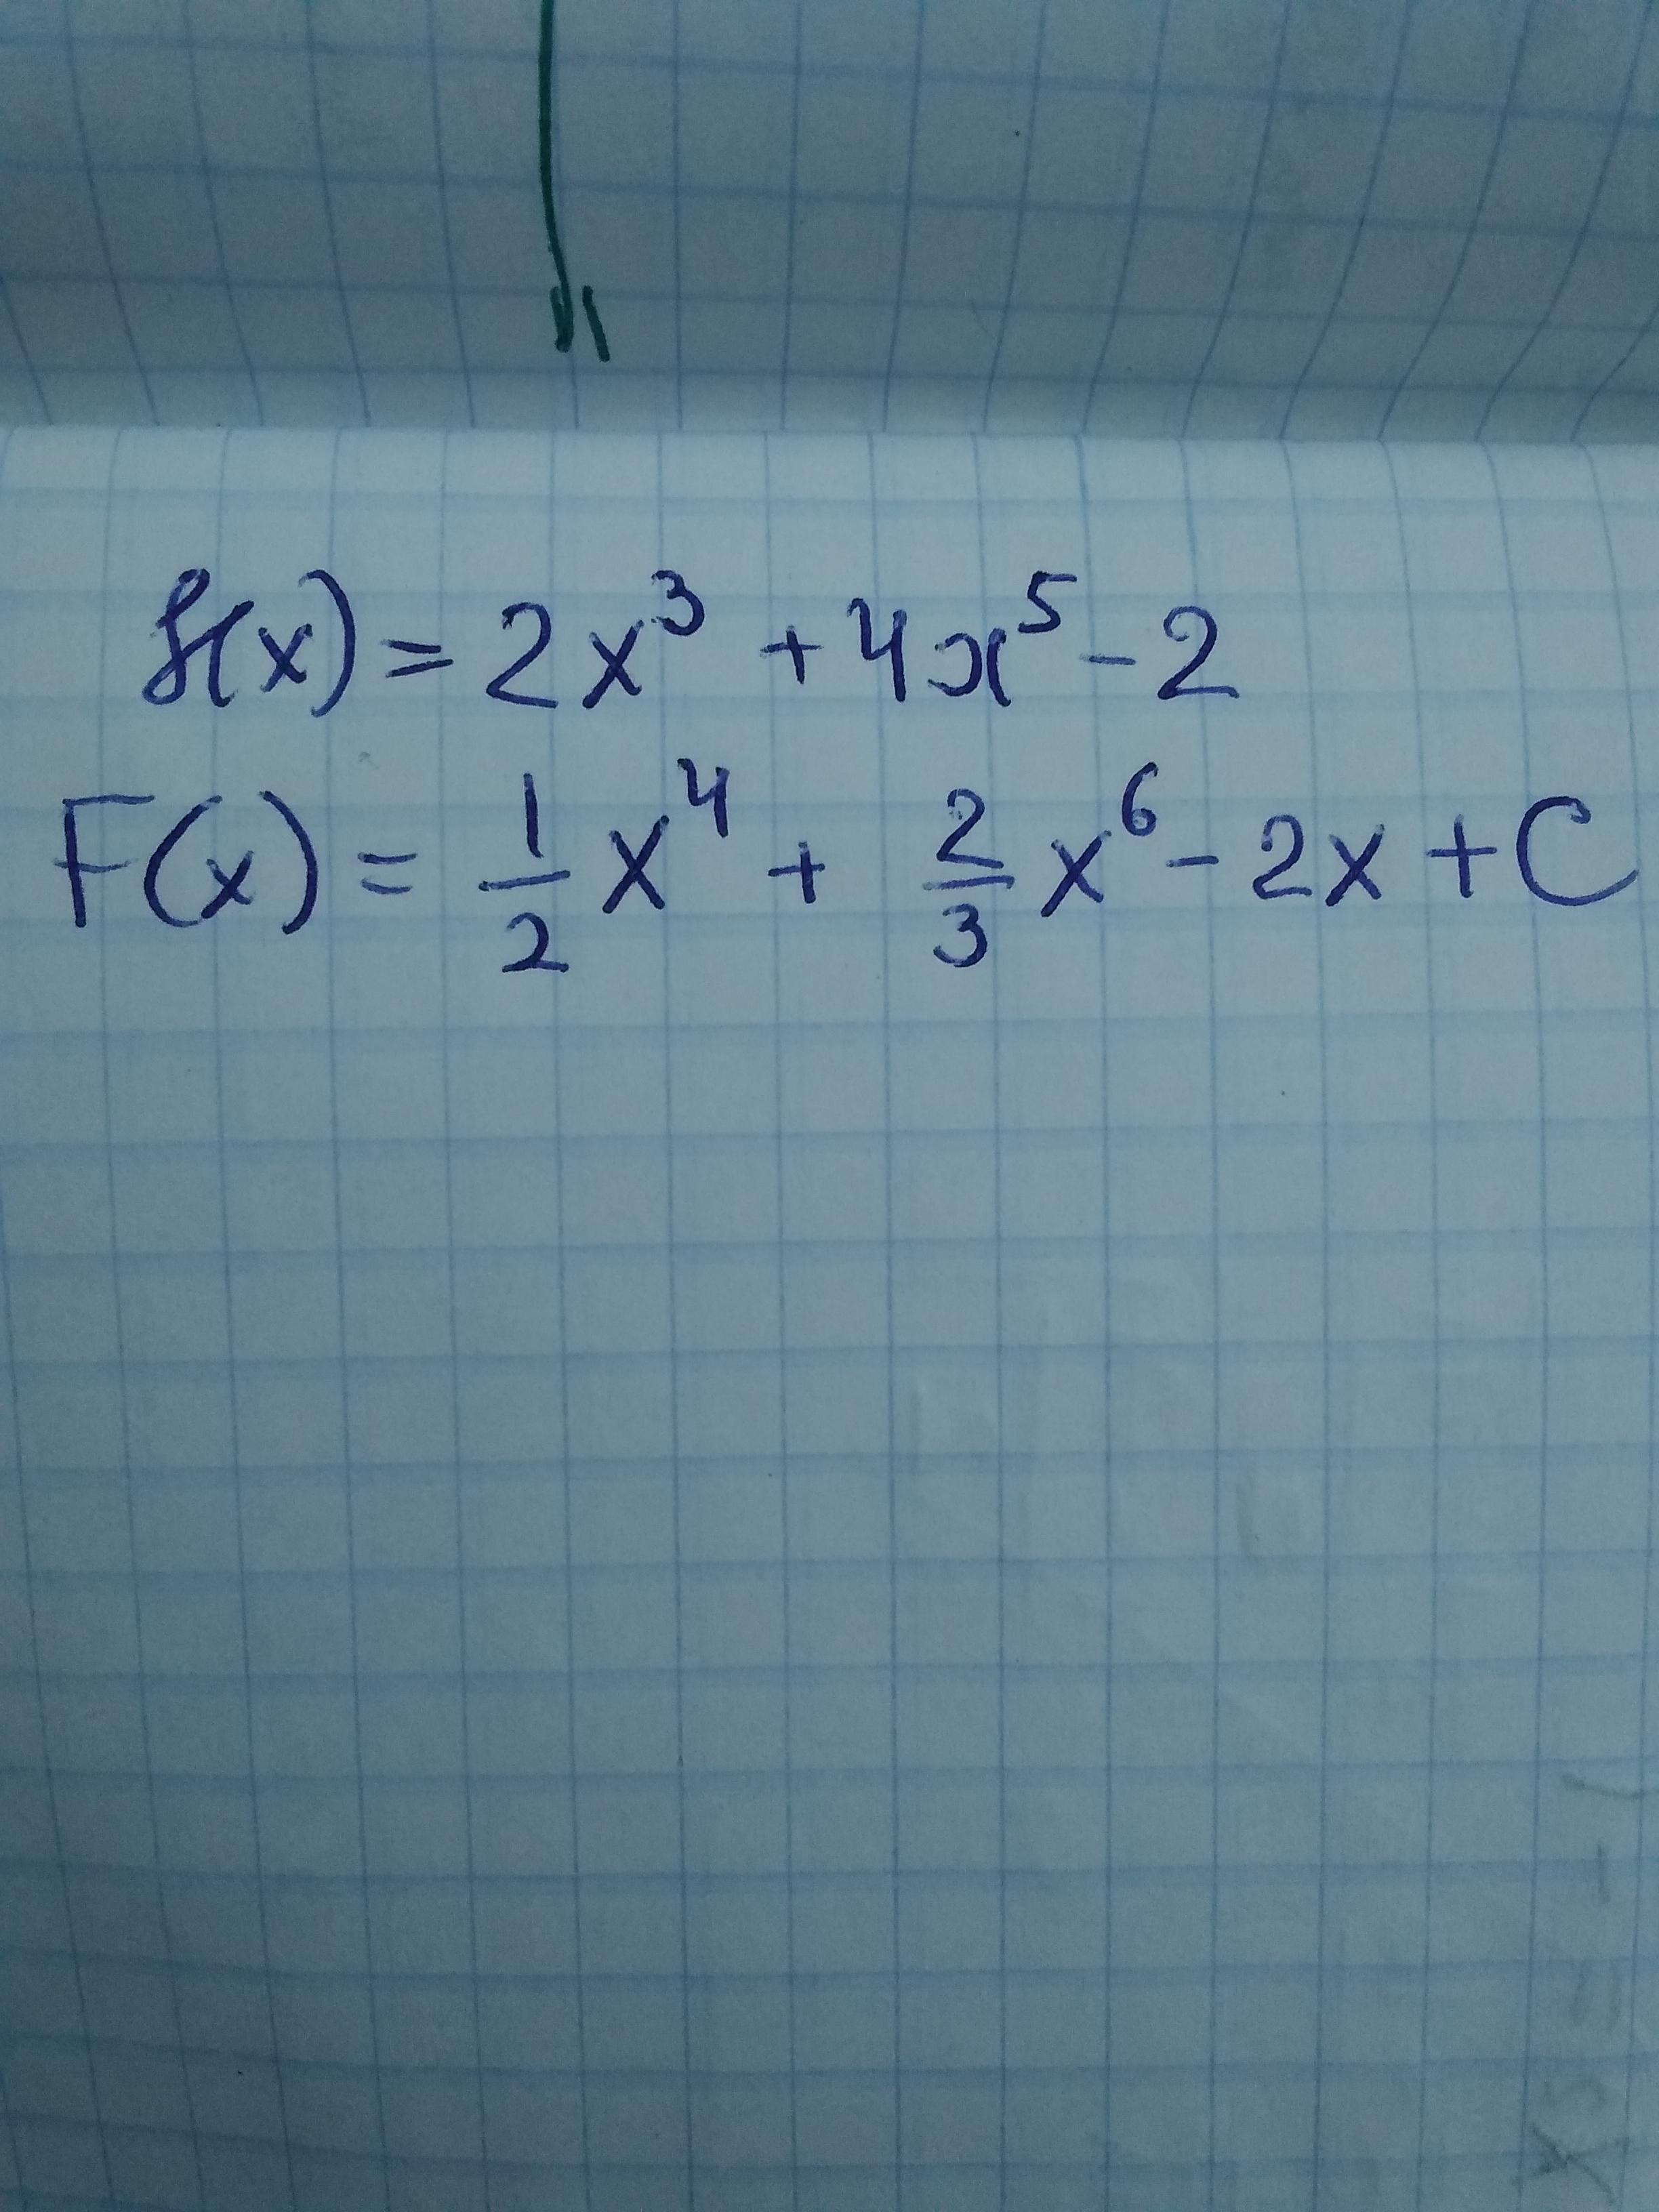 f(x) = 2x³ + 4x⁵ - 2
F(x) = 1/2 x⁴ + 2/3 x⁶ - 2x + C